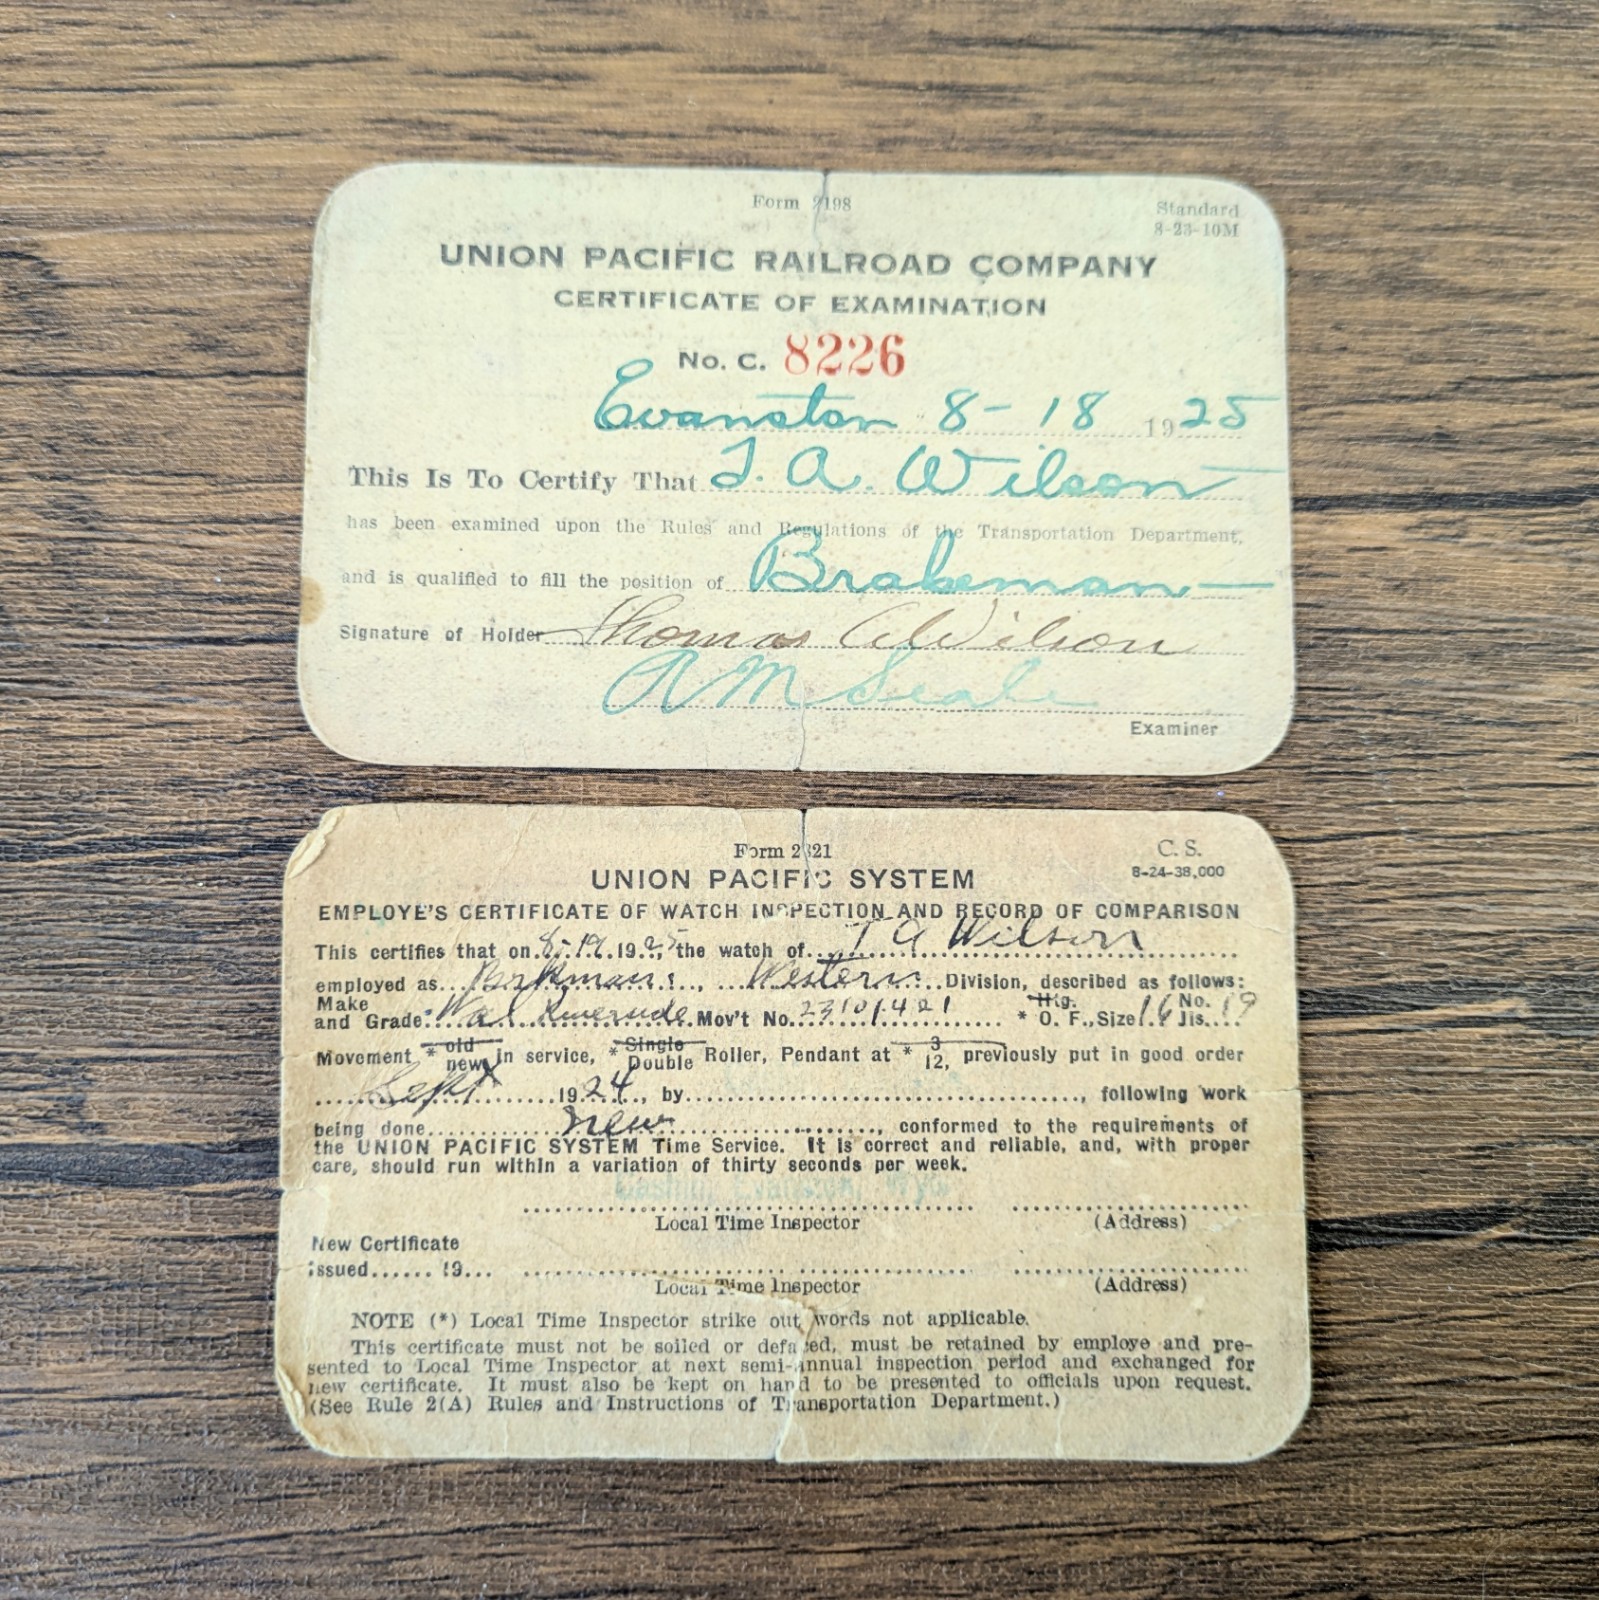 Form 2198
Standard
8-23-10M
UNION PACIFIC RAILROAD COMPANY
CERTIFICATE OF EXAMINATION
No. C. 8226
Evanston 8-18 1925
This Is To Certify That T. A. Wilson
has been examined upon the Rules and Regulations of the Transportation Department,
and is qualified to fill the position of Brakeman
Signature of Holder Thomas A Wilson
Examiner
Form 2821
C. S.
8-24-38,000
UNION PACIFIC SYSTEM
EMPLOYE'S CERTIFICATE OF WATCH INSPECTION AND RECORD OF COMPARISON
This certifies that on 8-19 1925, the watch of T A Wilson
employed as Brkman, Western Division, described as follows:
Make and Grade Wal Riverside Mov't No. 23101421 * Htg. O. F., Size 16 No. Jls. 19
Movement * old new in service, * Single Double Roller, Pendant at * 3 12, previously put in good order
Sept 1924, by, following work
being done New, conformed to the requirements of
the UNION PACIFIC SYSTEM Time Service. It is correct and reliable, and, with proper
care, should run within a variation of thirty seconds per week.
Evanston, Wyo
Local Time Inspector (Address)
New Certificate
issued 19
Local Time Inspector (Address)
NOTE (*) Local Time Inspector strike out words not applicable.
This certificate must not be soiled or defaced, must be retained by employe and pre-
sented to Local Time Inspector at next semi-annual inspection period and exchanged for
new certificate. It must also be kept on hand to be presented to officials upon request.
(See Rule 2(A) Rules and Instructions of Transportation Department.)